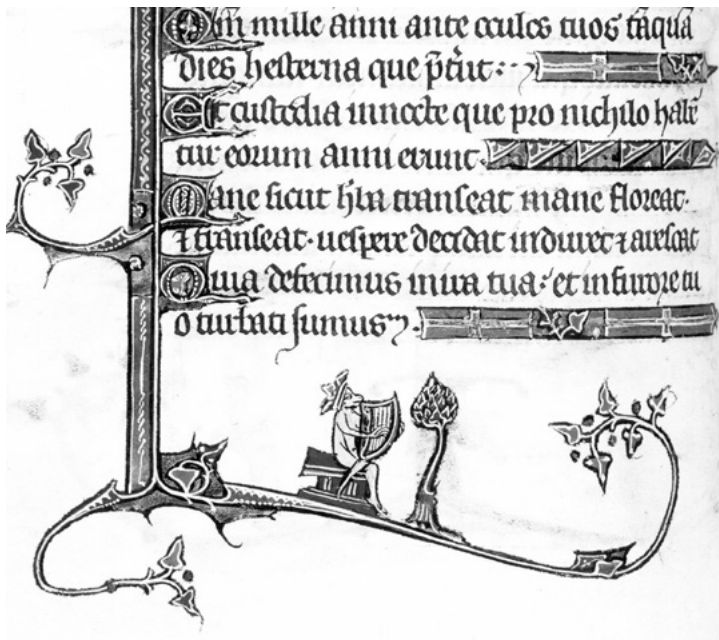 Qm̄ mille anni ante oculos tuos tāquā
dies hesterna que p̄t̄iit:
Et custodia in nocte que pro nichilo habē
tur eorum anni erunt.
Mane sicut h̄ba transeat mane floreat:
⁊ transeat. uespere decidat induret ⁊ arescat
Quia defecimus in ira tua: et in furore tu
o turbati sumus.